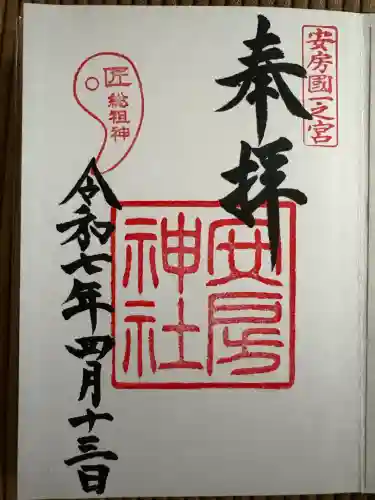 安房國一之宮
奉拝
安房神社
匠
総祖神
令和七年四月十三日